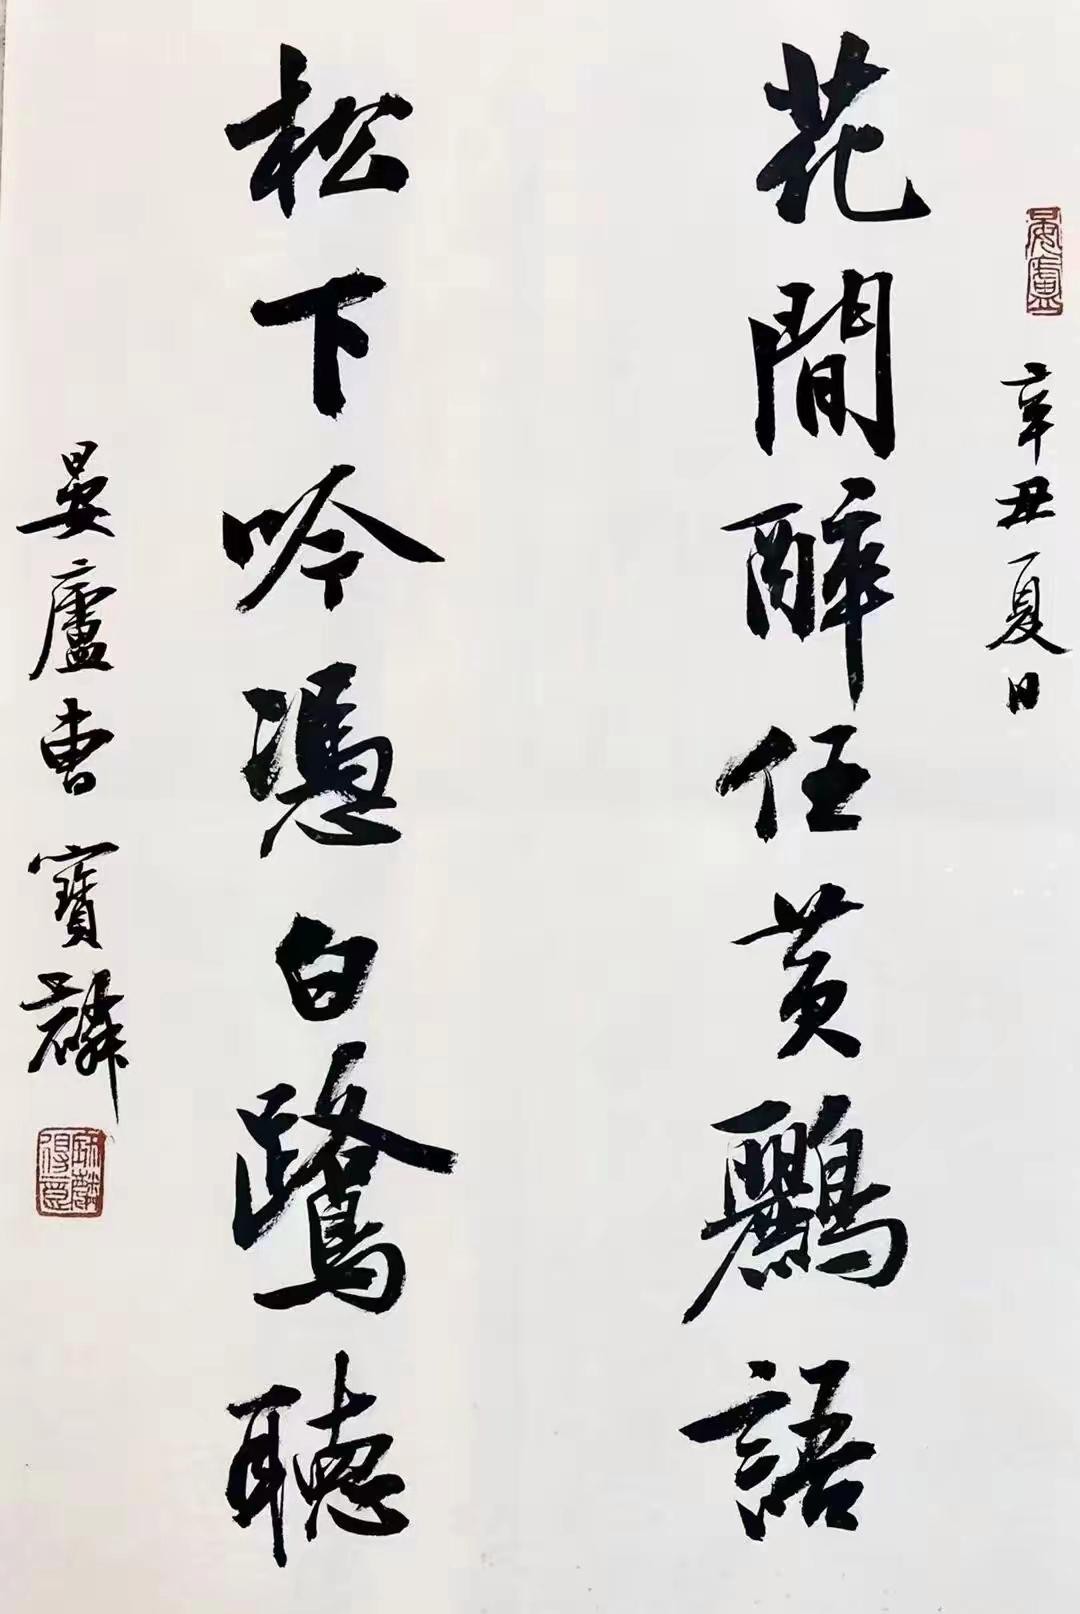 辛丑夏日
花間醉任黄鸝語
松下吟憑白鷺聽
晏廬曹寶麟
晏廬